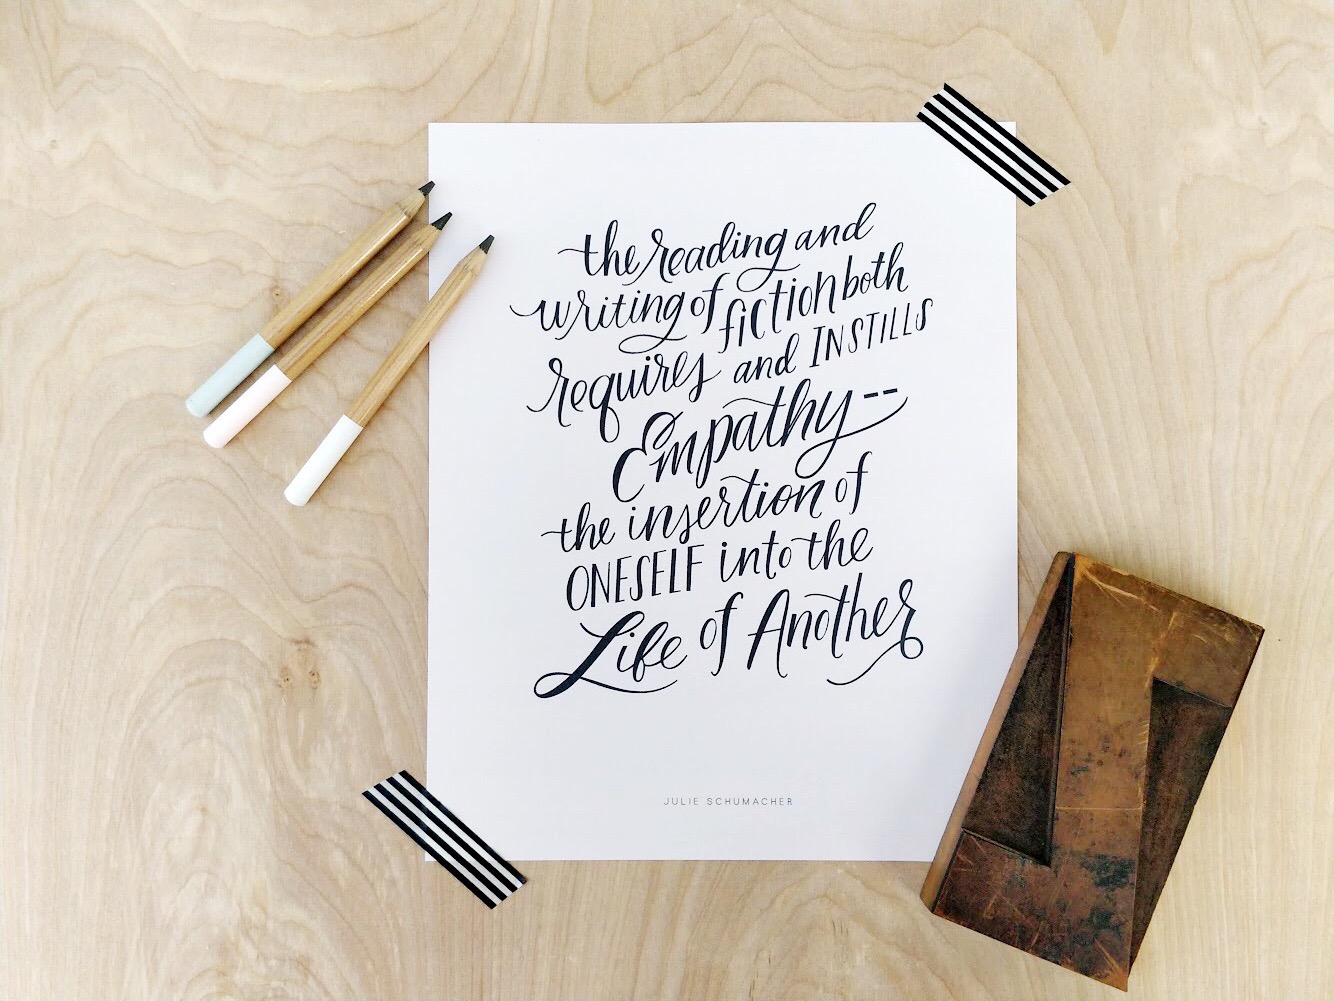 the reading and
writing of fiction both
requires and INSTILLS
Empathy--
the insertion of
ONESELF into the
Life of Another
JULIE SCHUMACHER